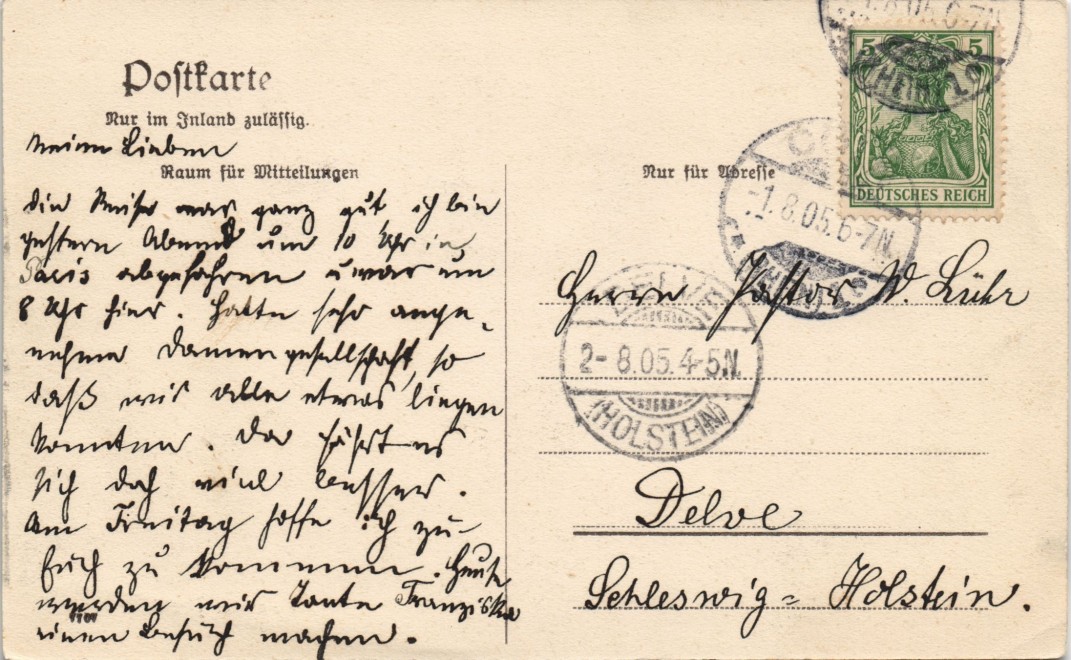 Postkarte
Nur im Inland zulässig.
Meine Lieben
Raum für Mitteilungen
die Reise war ganz gut, ich bin
gestern Abend um 10 Uhr in
Paris abgefahren u war um
8 Uhr hier. Hatte sehr ange-
nehme Damengesellschaft, so
daß wir alle etwas liegen
konnten. Da fährt es
sich doch viel besser.
Am Freitag hoffe ich zu
Euch zu kommen. Heute
werden wir Tante Franziska
einen Besuch machen.
Nur für Adresse
5 5
DEUTSCHES REICH
-1.8.05.6-7N.
Herrn Pastor W. Lühr
2-8.05.4-5N.
(HOLSTEIN)
Delve
Schleswig=Holstein.